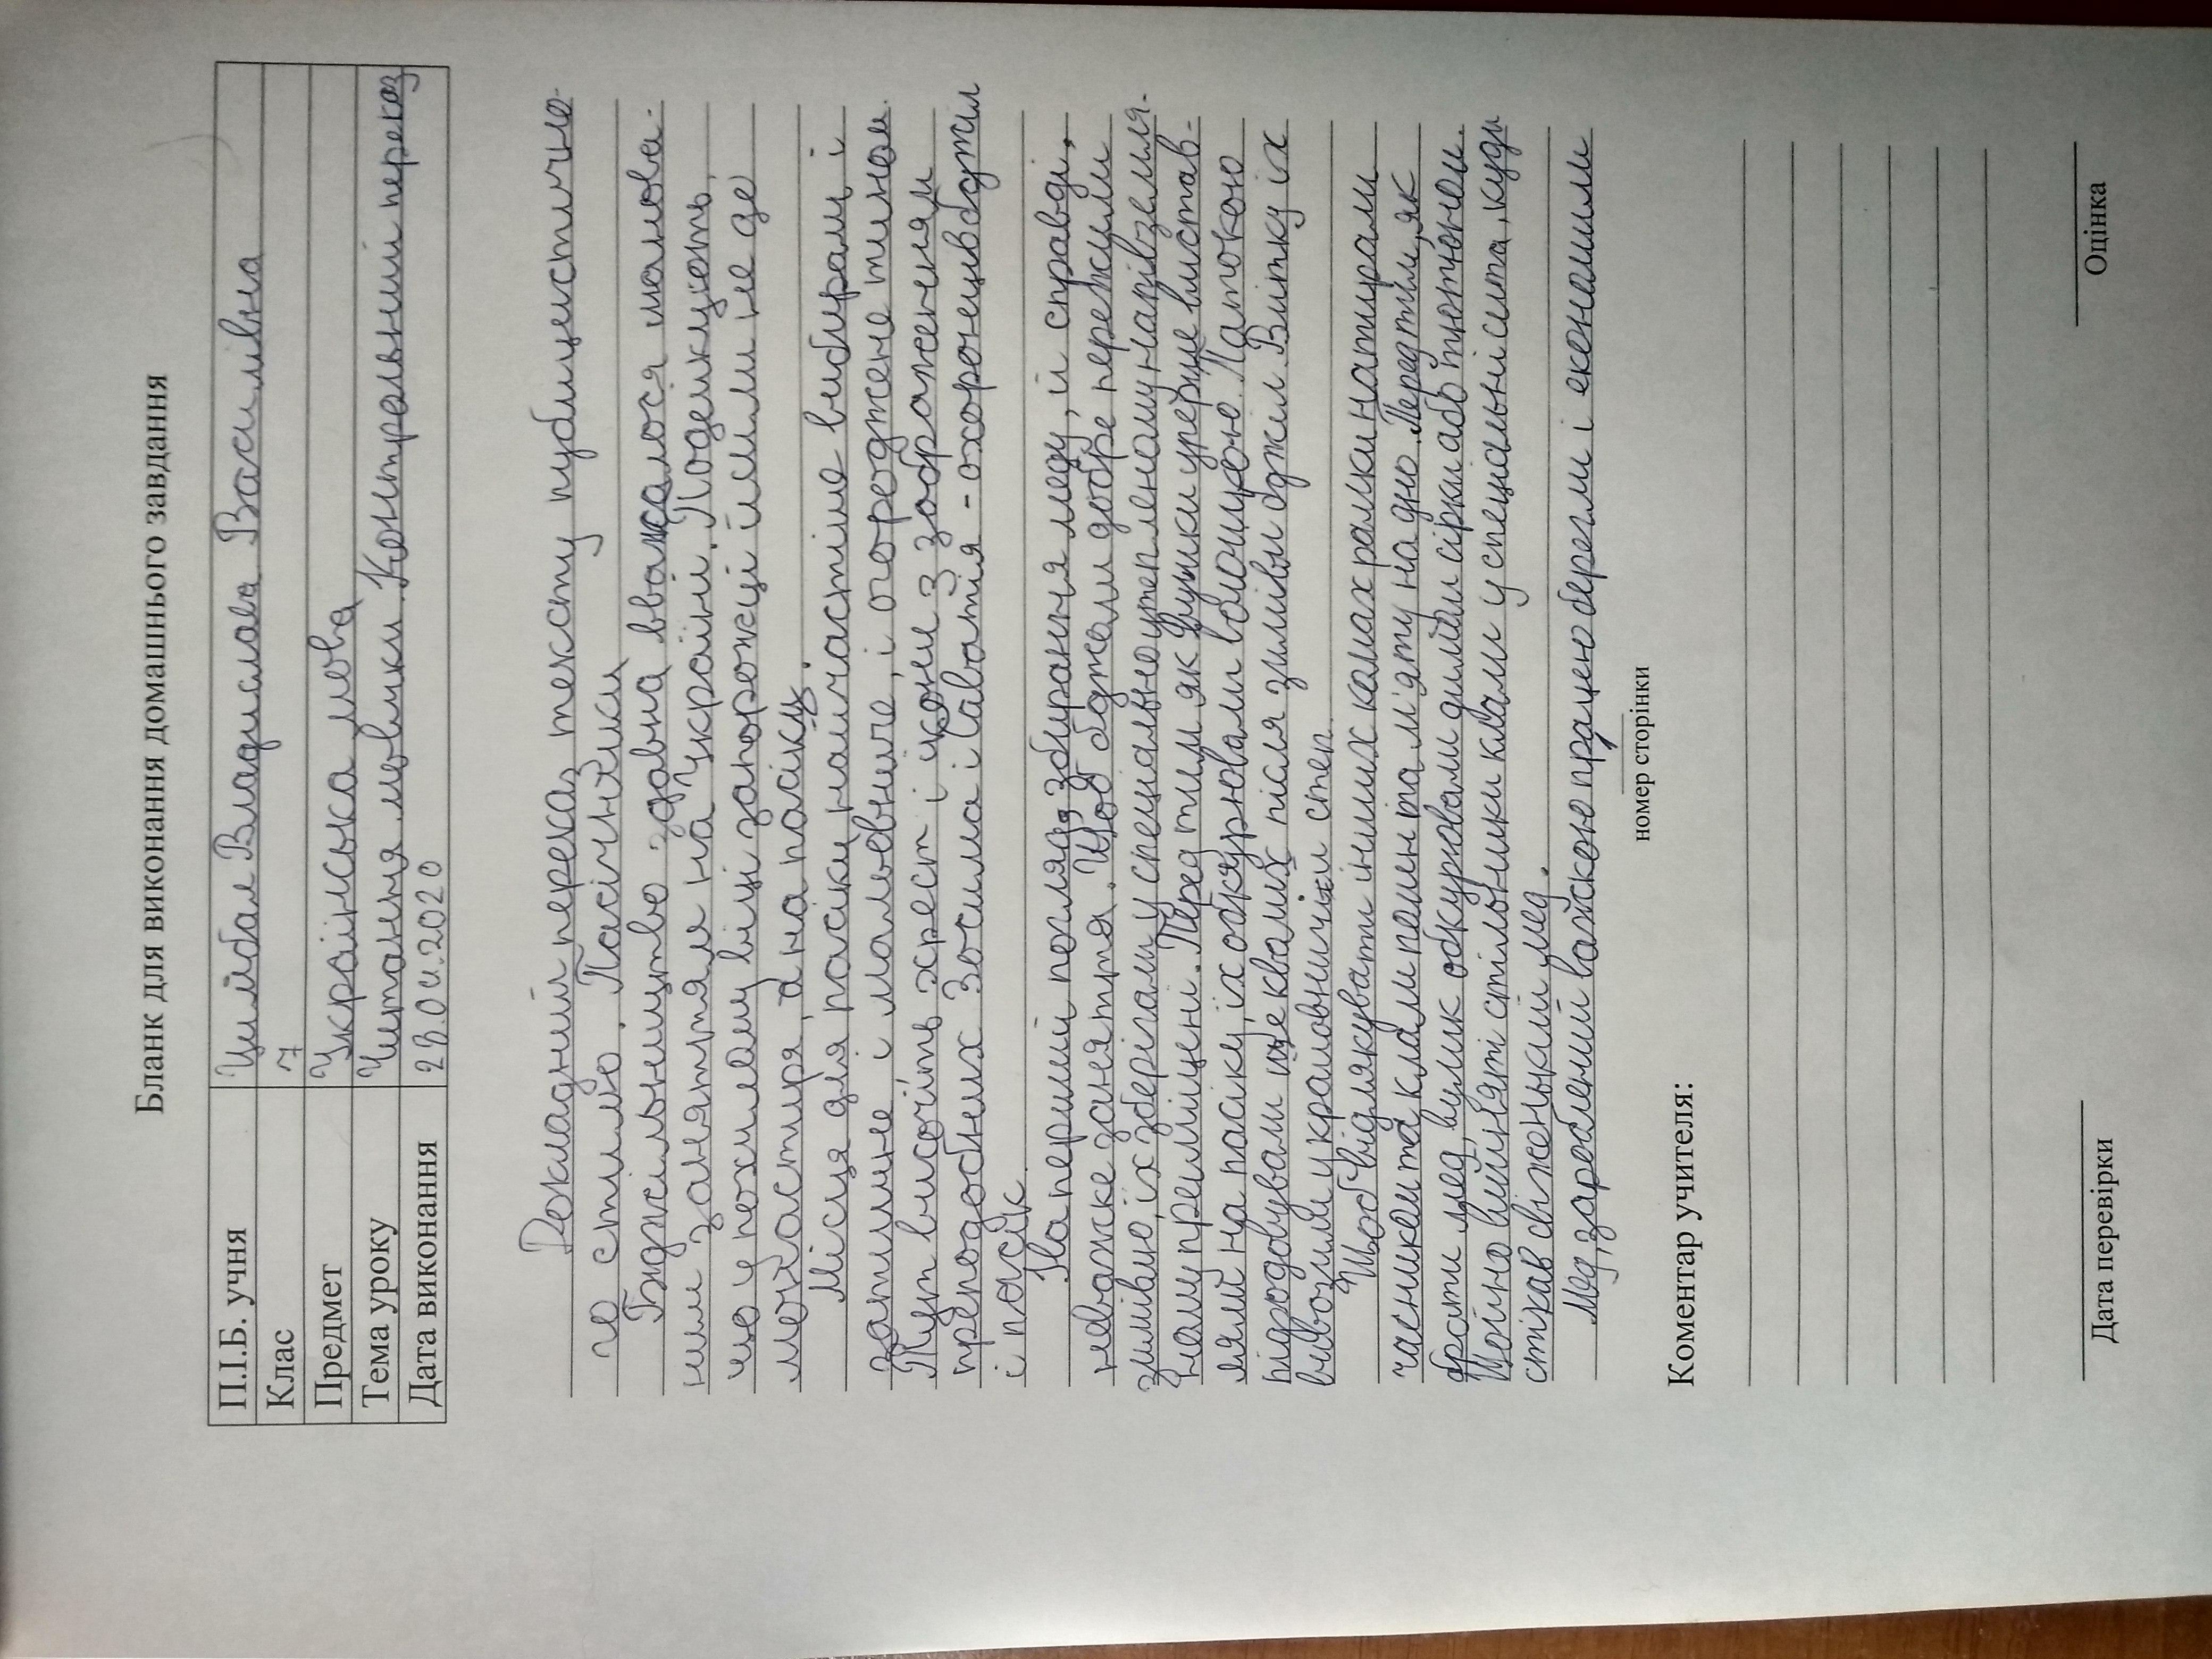 Бланк для виконання домашнього завдання
П.І.Б. учня Цимбал Владислава Василівна
Клас 7
Предмет Українська мова
Тема уроку Читання мовчки. Контрольний переказ
Дата виконання 28.04.2020
Докладний переказ тексту публіцистично-
го стилю. Пасічники
Бджільництво здавна вважалося шанова-
ним заняттям на Україні. Подейкують,
що у похилому віці запорожці йшли не де
монастиря, а на пасіку.
Місця для пасіки найчастіше вибирали і
затишне і мальовниче, і огороджене тином.
Тут висить хрест і ікони з зображенням
преподобних Зосима і Саватія - охоронців бджіл
і пасік.
На перший погляд, збирання меду, й справді,
неважке заняття. Щоб бджоли добре пережили
зимівлю, їх зберігали у спеціально утепленому напівземля-
ному приміщені. Перед тим як вулики уперше вистав-
ляли на пасіку, їх обкурювали вощиною. Патокою
підгодовували ще кволих після зимівлі бджіл. Влітку їх
вивозили у крайовничий степ.
Щоб відлякувати інших комах рамки натирали
часником та клали полин та м'яту на дно. Перед тим, як
брати мед, вулик обкурювали димом сірки або тютюном.
Щойно вийняті стільники клали у спеціальні сита, куди
стікав свіженький мед.
Мед, зароблений важкою працею берегли і економили
номер сторінки
Коментар учителя:
Дата перевірки Оцінка